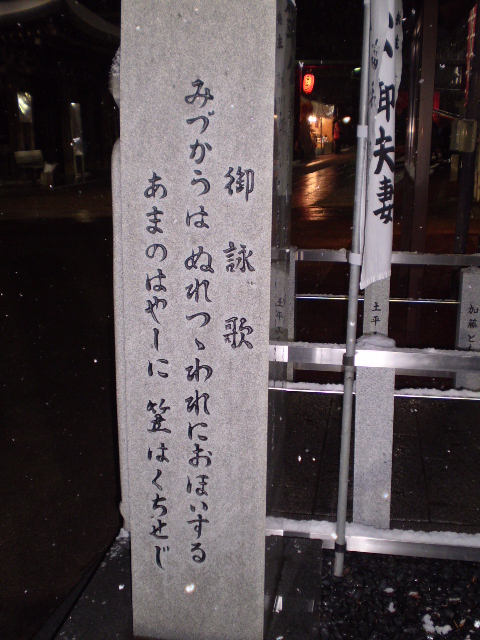 御詠歌
みづからはぬれつゝわれにおほいする
あまのはやしに笠はくちせじ
御夫妻
土平
土平
加藤と